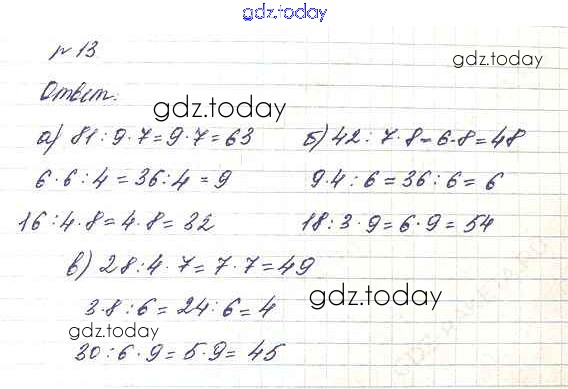 gdz.today
№ 13
gdz.today
Ответ:
gdz.today
а) 81:9·7=9·7=63 б) 42:7·8=6·8=48
6·6:4=36:4=9 9·4:6=36:6=6
16:4·8=4·8=32 18:3·9=6·9=54
в) 28:4·7=7·7=49
3·8:6=24:6=4 gdz.today
gdz.today
30:6·9=5·9=45